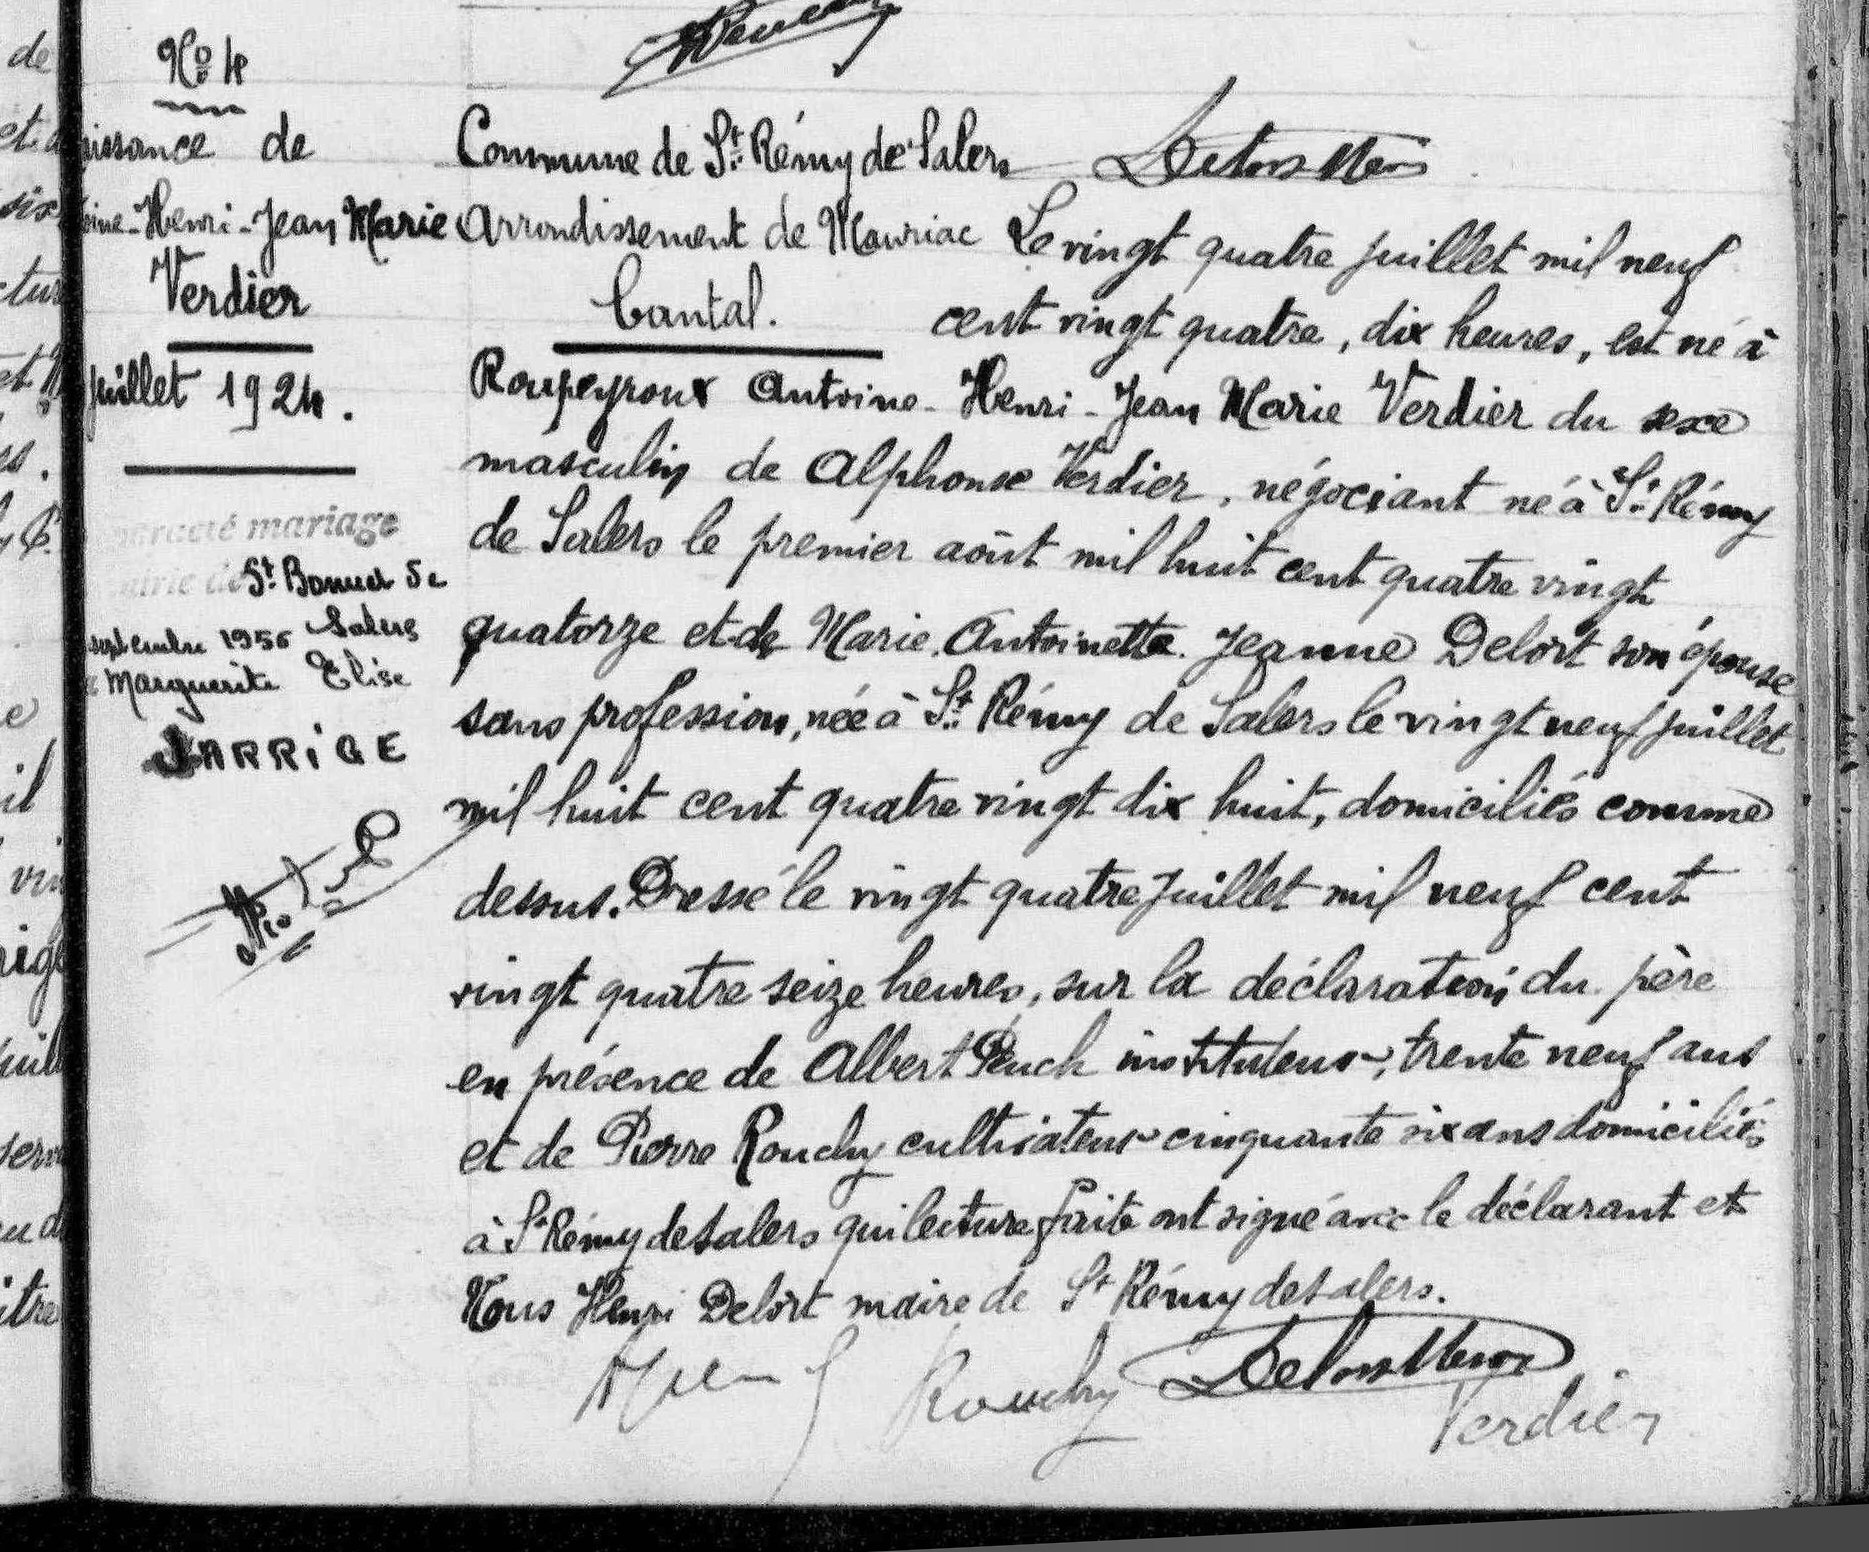 No 4
naissance de
Antoine-Henri-Jean Marie
Verdier
juillet 1924.
contracté mariage
mairie de St Bonnet de
Salers
septembre 1956
Marguerite Elise
JARRIGE
Commune de St Rémy de Salers
Arrondissement de Mauriac
Cantal.
Le vingt quatre juillet mil neuf
cent vingt quatre, dix heures, est né à
Roupeyroux Antoine-Henri-Jean Marie Verdier du sexe
masculin de Alphonse Verdier, négociant né à St Rémy
de Salers le premier août mil huit cent quatre vingt
quatorze et de Marie, Antoinette. Jeanne Delort son épouse
sans profession, née à St Rémy de Salers le vingt neuf juillet
mil huit cent quatre vingt dix huit, domiciliés comme
dessus. Dressé le vingt quatre juillet mil neuf cent
vingt quatre seize heures, sur la déclaration du père
en présence de Albert Peuch instituteur, trente neuf ans
et de Pierre Rouchy cultivateur cinquante six ans domiciliés
à St Rémy de Salers qui lecture faite ont signé avec le déclarant et
Nous Henri Delort maire de St Rémy de Salers.
Rouchy Delort Henri
Verdier